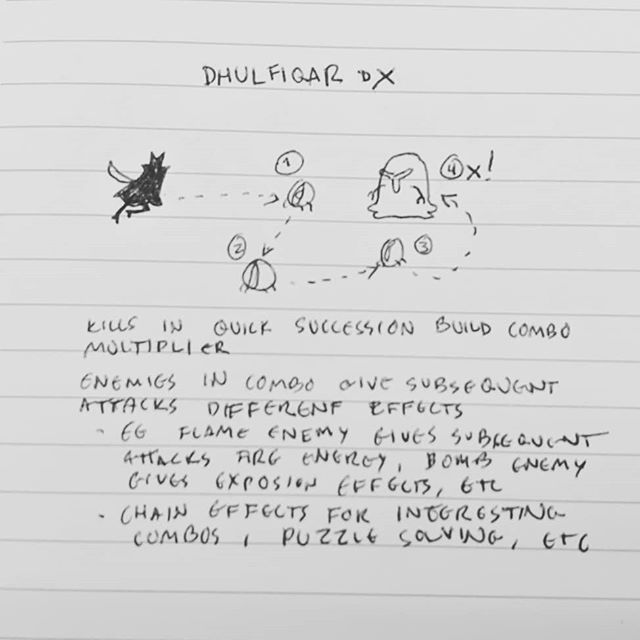 DHULFIQAR DX
1
4 X!
2
3
KILLS IN QUICK SUCCESSION BUILD COMBO
MULTIPLIER
ENEMIES IN COMBO GIVE SUBSEQUENT
ATTACKS DIFFERENT EFFECTS
- EG FLAME ENEMY GIVES SUBSEQUENT
ATTACKS FIRE ENERGY, BOMB ENEMY
GIVES EXPOSION EFFECTS, ETC
- CHAIN EFFECTS FOR INTERESTING
COMBOS, PUZZLE SOLVING, ETC